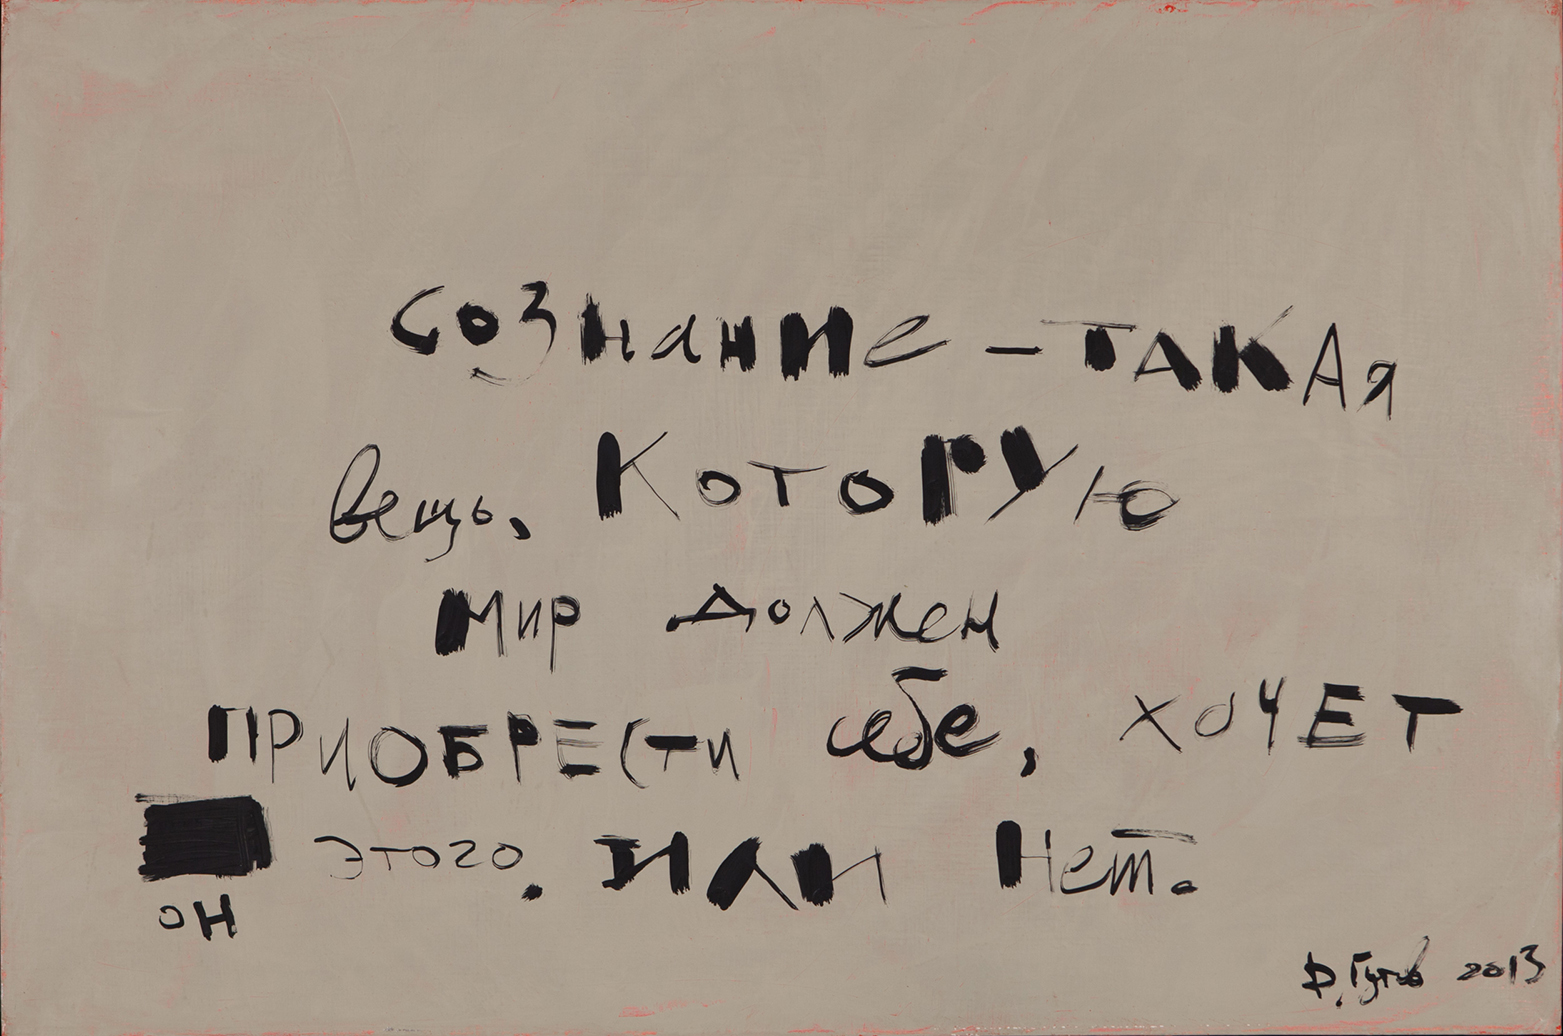 сознание – такая
вещь, которую
мир должен
приобрести себе, хочет
этого. или нет.
он
Д. Гутов 2013